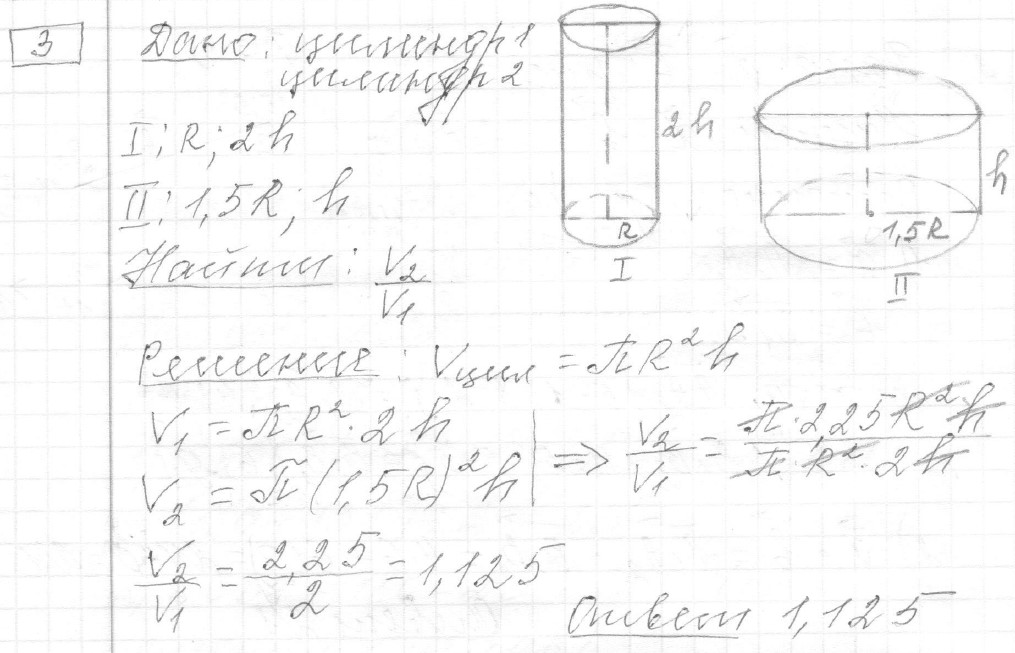 3
Дано: цилиндр 1
цилиндр 2
I: R; 2h
II: 1,5R; h
Найти: V₂/V₁
2h
R
I
h
1,5R
II
Решение: Vцил = πR²h
V₁ = πR²·2h
V₂ = π(1,5R)²h
=> V₂/V₁ = π·2,25R²h / π·R²·2h
V₂/V₁ = 2,25/2 = 1,125
Ответ 1,125